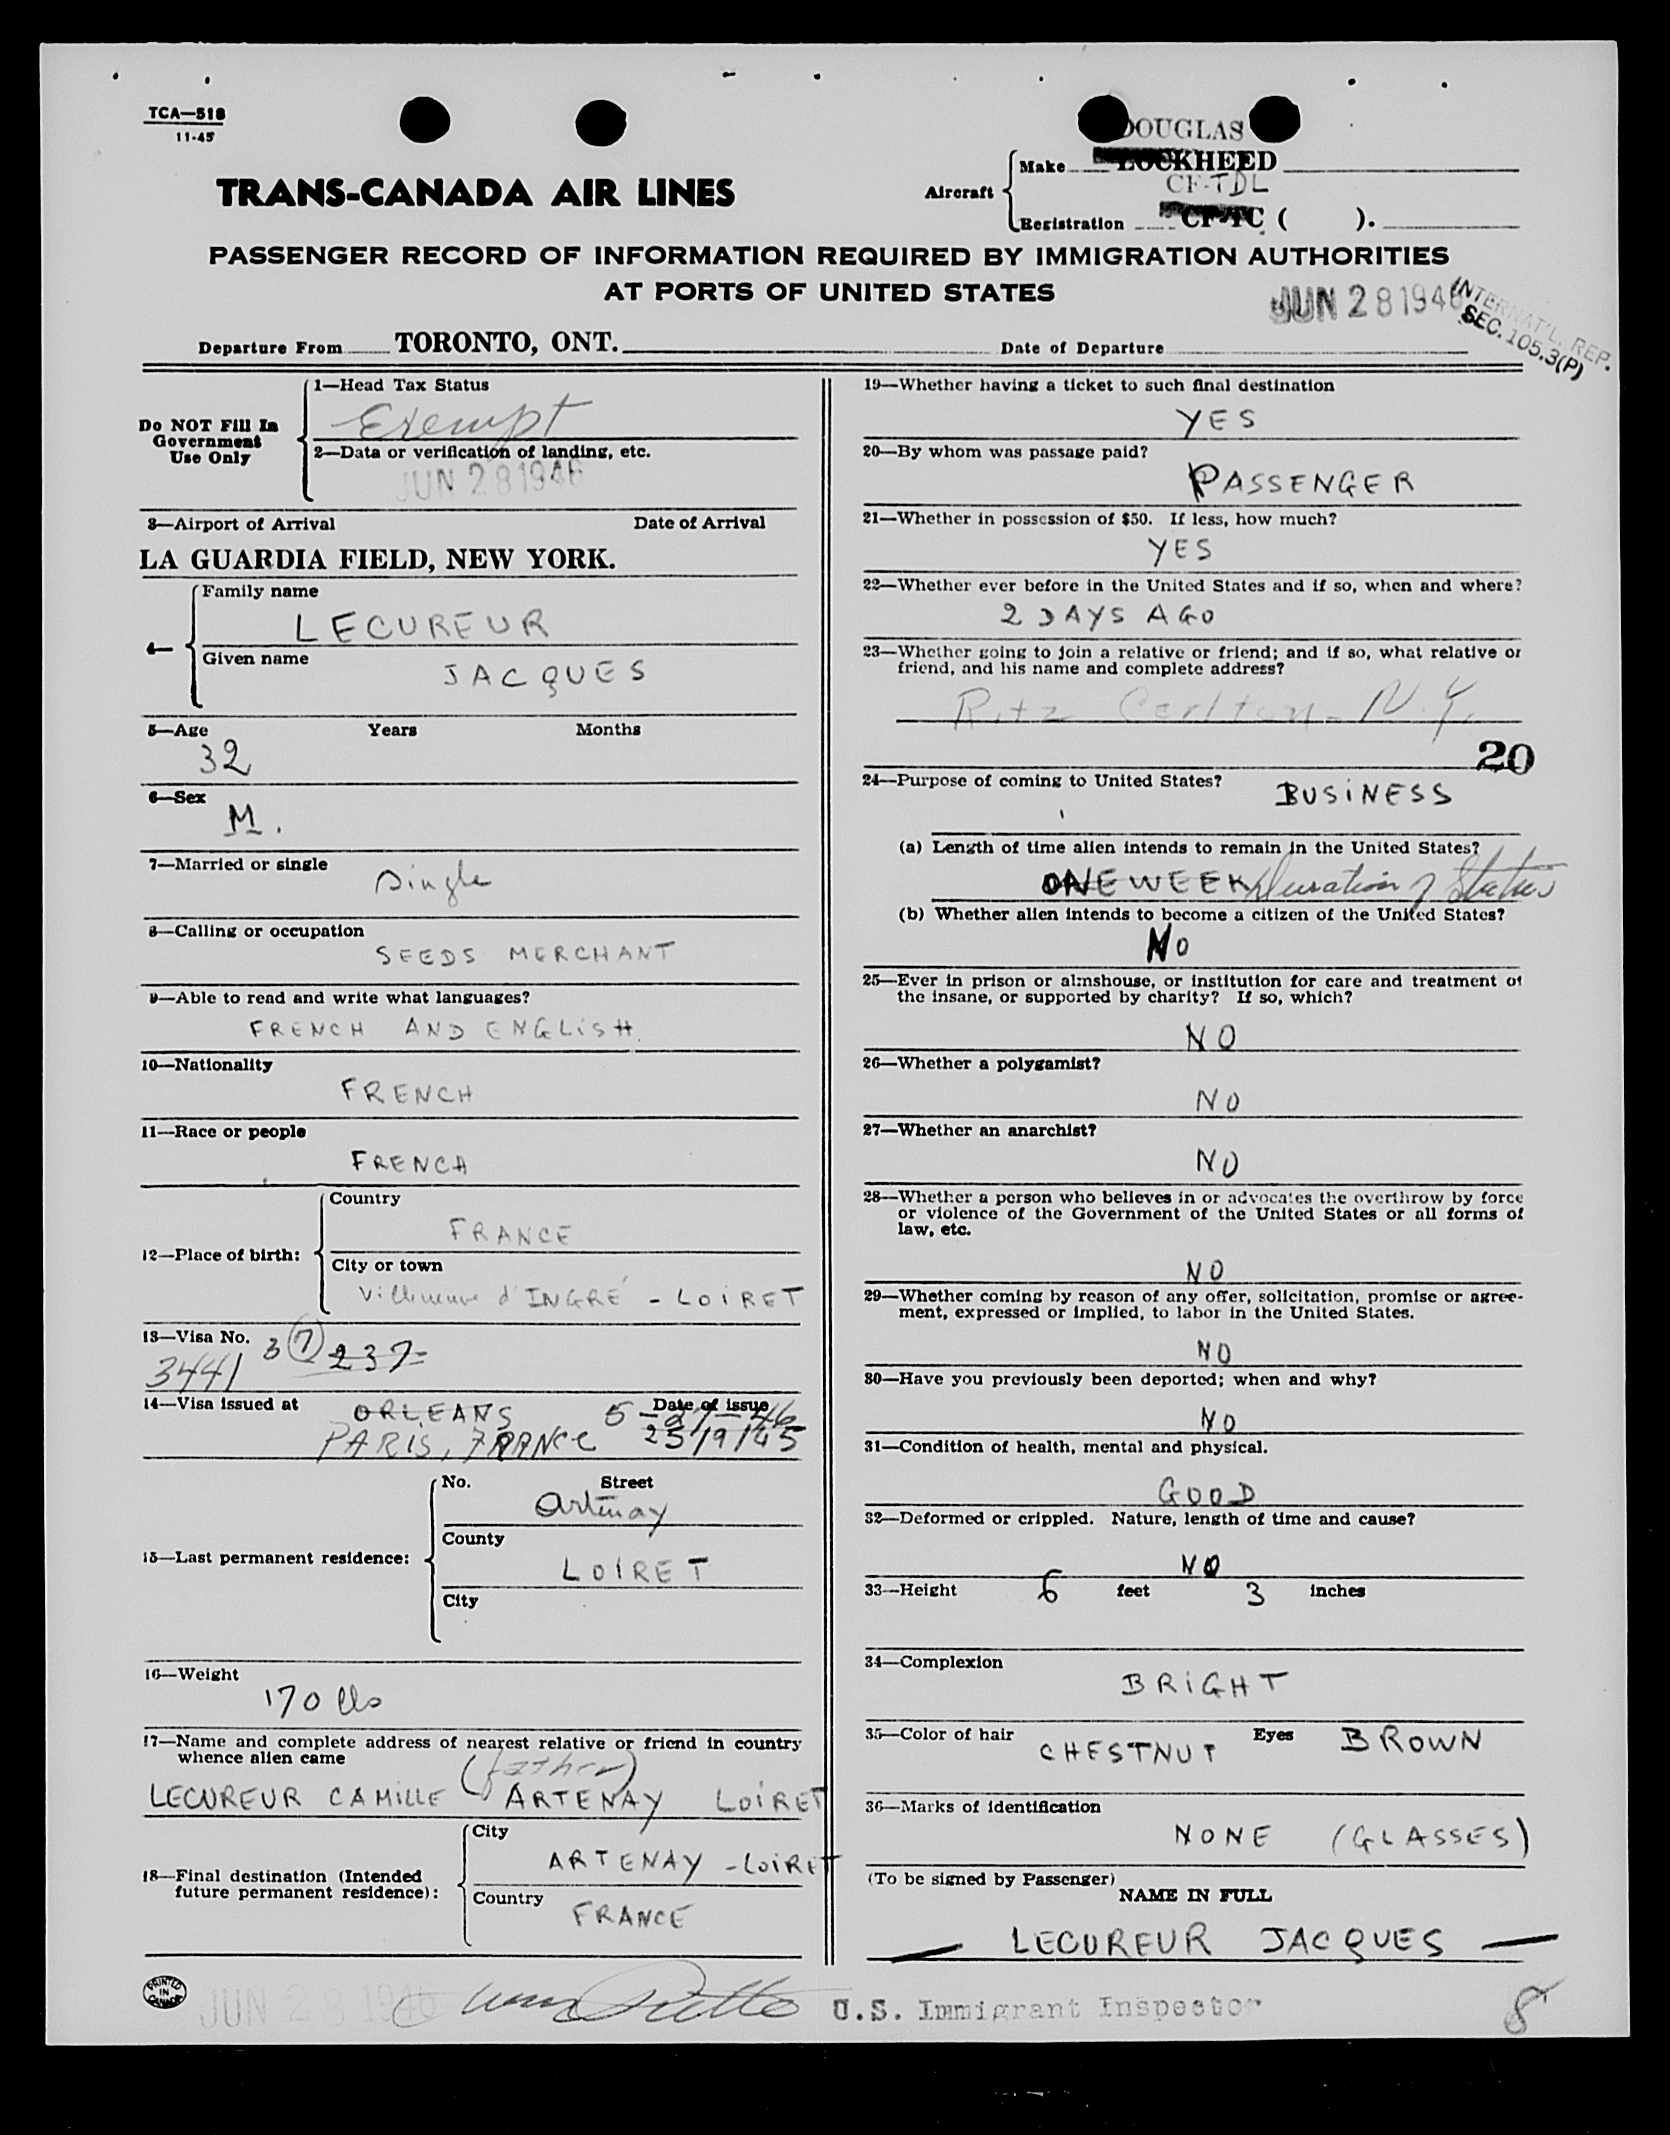 TCA—518
11-45
DOUGLAS
Make LOCKHEED
TRANS-CANADA AIR LINES
Aircraft
CF-TDL
Registration CF-TC ( ).
PASSENGER RECORD OF INFORMATION REQUIRED BY IMMIGRATION AUTHORITIES
AT PORTS OF UNITED STATES
JUN 28 1946
INTERNAT'L. REP.
SEC. 105.3(P)
Departure From TORONTO, ONT.
Date of Departure
Do NOT Fill In
Government
Use Only
1—Head Tax Status
Exempt
2—Data or verification of landing, etc.
JUN 28 1946
3—Airport of Arrival Date of Arrival
LA GUARDIA FIELD, NEW YORK.
4—
Family name
LECUREUR
Given name
JACQUES
5—Age Years Months
32
6—Sex
M.
7—Married or single
Single
8—Calling or occupation
SEEDS MERCHANT
9—Able to read and write what languages?
FRENCH AND ENGLISH.
10—Nationality
FRENCH
11—Race or people
FRENCH
12—Place of birth:
Country
FRANCE
City or town
Villeneuve d'INGRÉ - LOIRET
13—Visa No.
3 7 237
3441
14—Visa issued at Date of issue
ORLEANS 5-27-46
PARIS, FRANCE 25/9/45
15—Last permanent residence:
No. Street
Artenay
County
LOIRET
City
16—Weight
170 lbs
17—Name and complete address of nearest relative or friend in country
whence alien came
(father)
LECUREUR CAMILLE ARTENAY LOIRET
18—Final destination (Intended
future permanent residence):
City
ARTENAY - LOIRET
Country
FRANCE
19—Whether having a ticket to such final destination
YES
20—By whom was passage paid?
PASSENGER
21—Whether in possession of $50. If less, how much?
YES
22—Whether ever before in the United States and if so, when and where?
2 DAYS AGO
23—Whether going to join a relative or friend; and if so, what relative or
friend, and his name and complete address?
Ritz Carlton - N.Y.
20
24—Purpose of coming to United States?
BUSINESS
(a) Length of time alien intends to remain in the United States?
ONE WEEK Duration of Status
(b) Whether alien intends to become a citizen of the United States?
NO
25—Ever in prison or almshouse, or institution for care and treatment of
the insane, or supported by charity? If so, which?
NO
26—Whether a polygamist?
NO
27—Whether an anarchist?
NO
28—Whether a person who believes in or advocates the overthrow by force
or violence of the Government of the United States or all forms of
law, etc.
NO
29—Whether coming by reason of any offer, solicitation, promise or agree-
ment, expressed or implied, to labor in the United States.
NO
30—Have you previously been deported; when and why?
NO
31—Condition of health, mental and physical.
GOOD
32—Deformed or crippled. Nature, length of time and cause?
NO
33—Height 6 feet 3 inches
34—Complexion
BRIGHT
35—Color of hair CHESTNUT Eyes BROWN
36—Marks of identification
NONE (GLASSES)
(To be signed by Passenger)
NAME IN FULL
LECUREUR JACQUES
PRINTED
IN
CANADA
JUN 28 1946
U.S. Immigrant Inspector
8